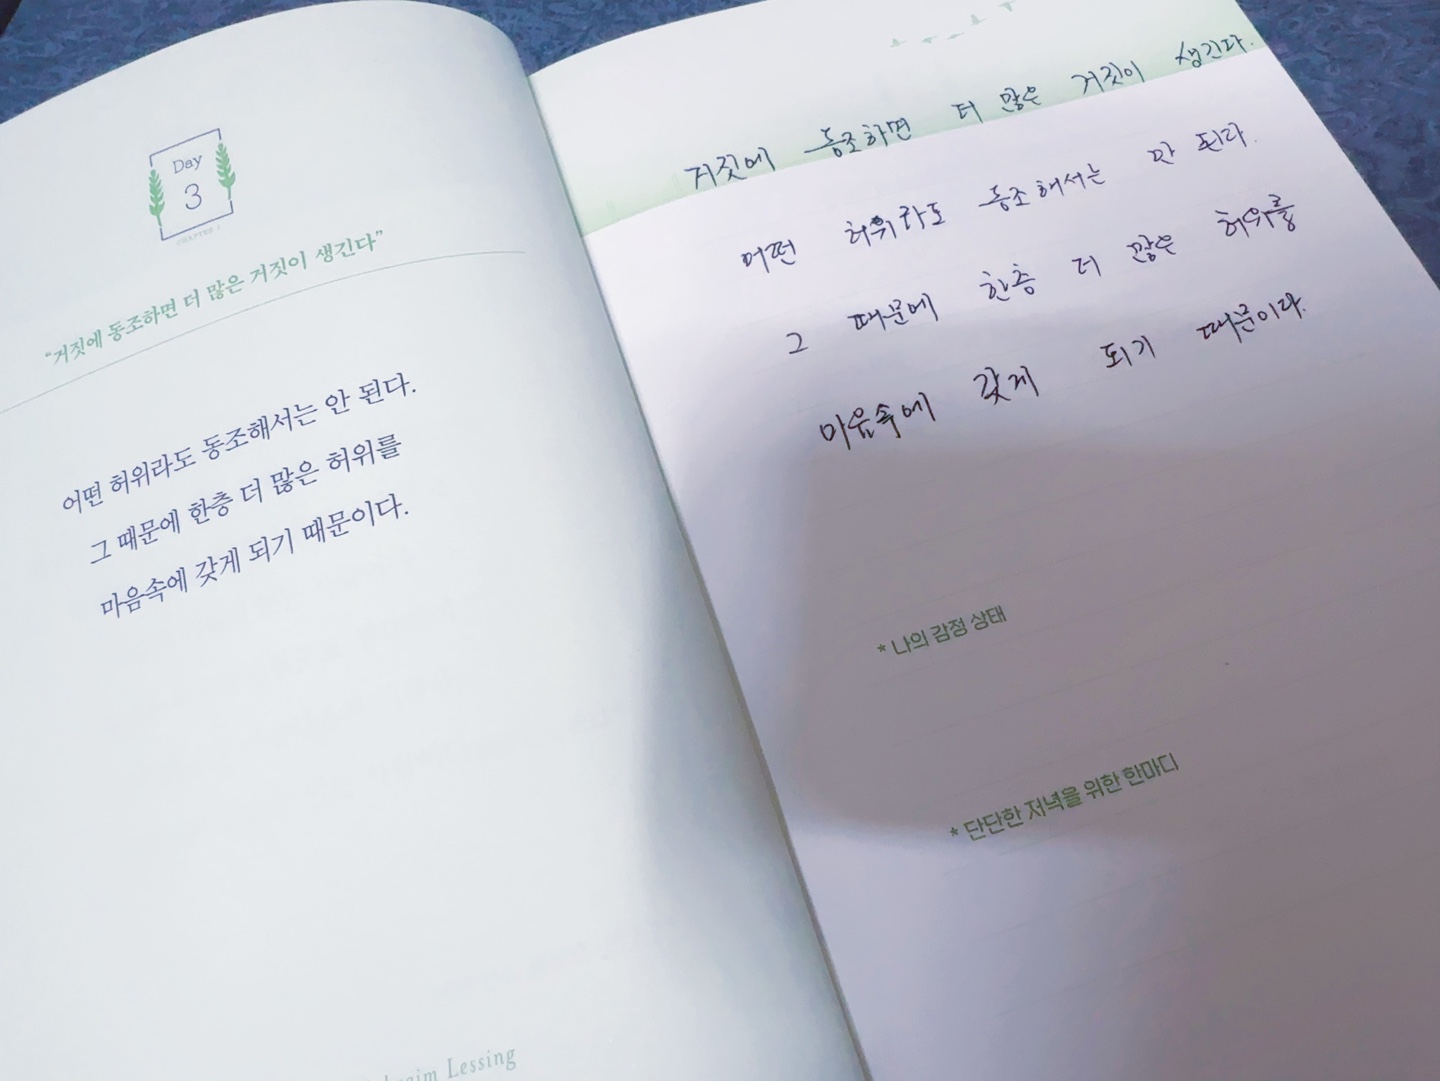 Day
3
CHAPTER 1
“거짓에 동조하면 더 많은 거짓이 생긴다”
어떤 허위라도 동조해서는 안 된다.
그 때문에 한층 더 많은 허위를
마음속에 갖게 되기 때문이다.
Lessing
거짓에 동조하면 더 많은 거짓이 생긴다.
어떤 허위라도 동조해서는 안 된다.
그 때문에 한층 더 많은 허위를
마음속에 갖게 되기 때문이다.
* 나의 감정 상태
* 단단한 저녁을 위한 한마디